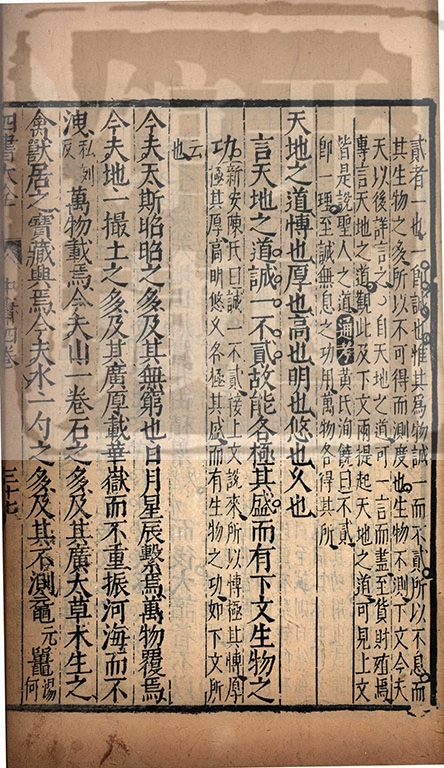 貳者一也一即誠也惟其為物誠一而不貳所以不息而
其生物之多所以不可得而測度也生物不測下文今夫
天以後詳言之〇自天地之道可一言而盡至貨財殖焉
專言天地之道觀此及下文兩提起天地之道可見上文
皆是說聖人之道通考黃氏洵饒曰不貳
即一理至誠無息之功用萬物各得其所
天地之道博也厚也高也明也悠也久也
言天地之道誠一不貳故能各極其盛而有下文生物之
功新安陳氏曰誠一不貳接上文說來所以博極其博厚
極其厚高明悠久各極其盛而有生物之功如下文所
云也
今夫天斯昭昭之多及其無窮也日月星辰繫焉萬物覆焉
今夫地一撮土之多及其廣厚載華嶽而不重振河海而不
洩私列反萬物載焉今夫山一卷石之多及其廣大草木生之
禽獸居之寶藏興焉今夫水一勺之多及其不測黿元鼉湯何
四書大全 中庸四卷 三十七